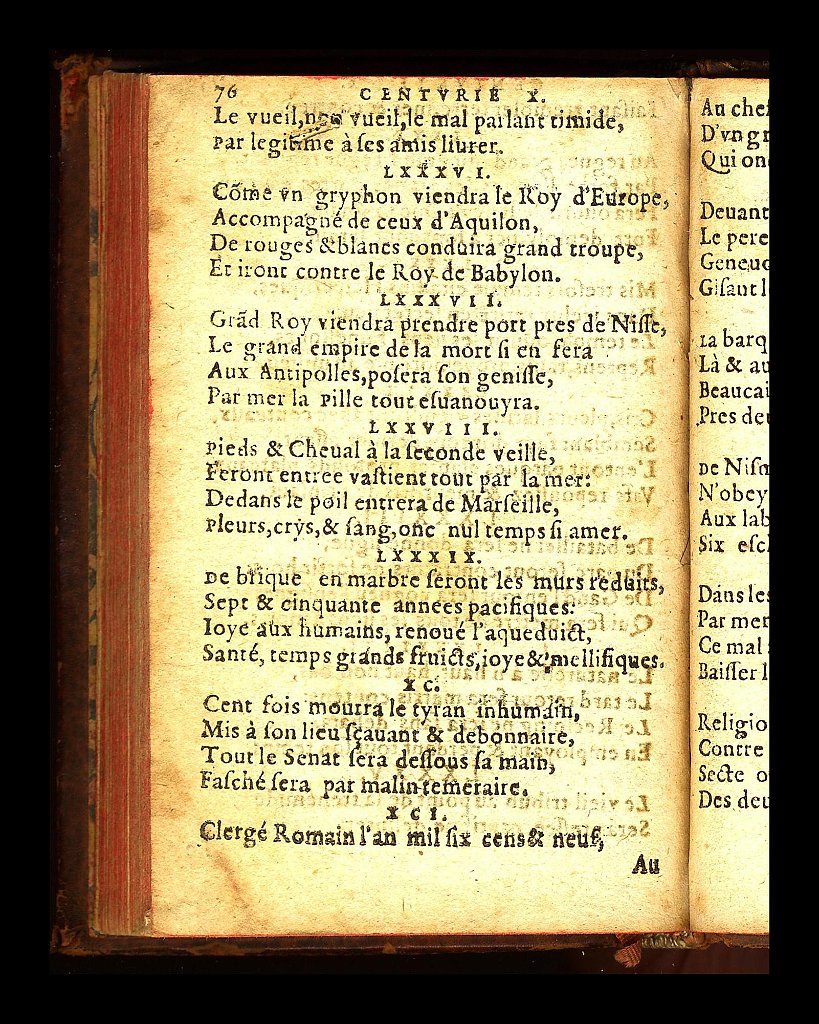 76 CENTVRIE X.
Le vueil, non vueil, le mal parlant timide,
Par legitime à ses amis liurer.
LXXXVI.
Cõme vn gryphon viendra le Roy d'Europe,
Accompagné de ceux d'Aquilon,
De rouges & blancs conduira grand troupe,
Et iront contre le Roy de Babylon.
LXXXVII.
Grãd Roy viendra prendre port pres de Nisse,
Le grand empire de la mort si en fera
Aux Antipolles, posera son genisse,
Par mer la Pille tout esuanouyra.
LXXVIII.
Pieds & Cheual à la seconde veille,
Feront entree vastient tout par la mer:
Dedans le poil entrera de Marseille,
Pleurs, crys, & sang, onc nul temps si amer.
LXXXIX.
De brique en marbre seront les murs reduits,
Sept & cinquante annees pacifiques:
Ioye aux humains, renoué l'aqueduict,
Santé, temps grands fruicts, ioye & mellifiques.
XC.
Cent fois mourra le tyran inhumain,
Mis à son lieu sçauant & debonnaire,
Tout le Senat sera dessous sa main,
Fasché sera par malin temeraire.
XCI.
Clergé Romain l'an mil six cens & neuf,
Au
Au chef
D'vn gr
Qui on
Deuant
Le pere
Geneue
Gisant l
La barq
Là & au
Beaucai
Pres de
De Nism
N'obey
Aux lab
Six escl
Dans les
Par mer
Ce mal
Baisser l
Religio
Contre
Secte o
Des deu